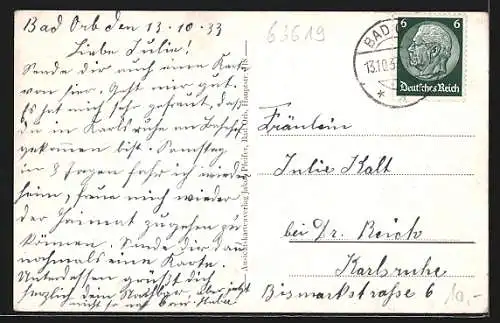 Bad Orb den 13.10.33
Liebe Julie!
Sende dir auch eine Karte
von hier. Geht mir gut.
Es hat mich sehr gefreut, daß
du in Karlsruhe am Bahnhof
gekommen bist. Samstag
in 8 Tagen fahr ich wieder
heim, freue mich wieder
der Heimat zugehen zu
können. Sende dir dann
nochmals eine Karte.
Unterdessen grüßt dich
herzlich dein
63619
BAD
13.10.3
6 6
Deutsches Reich
Ansichtskartenverlag Jakob Pfeifer, Bad Orb, Hauptstr.
Fräulein
Julie Kalt
bei Dr. Reich
Karlsruhe
Bismarkstrasse 6
10.-